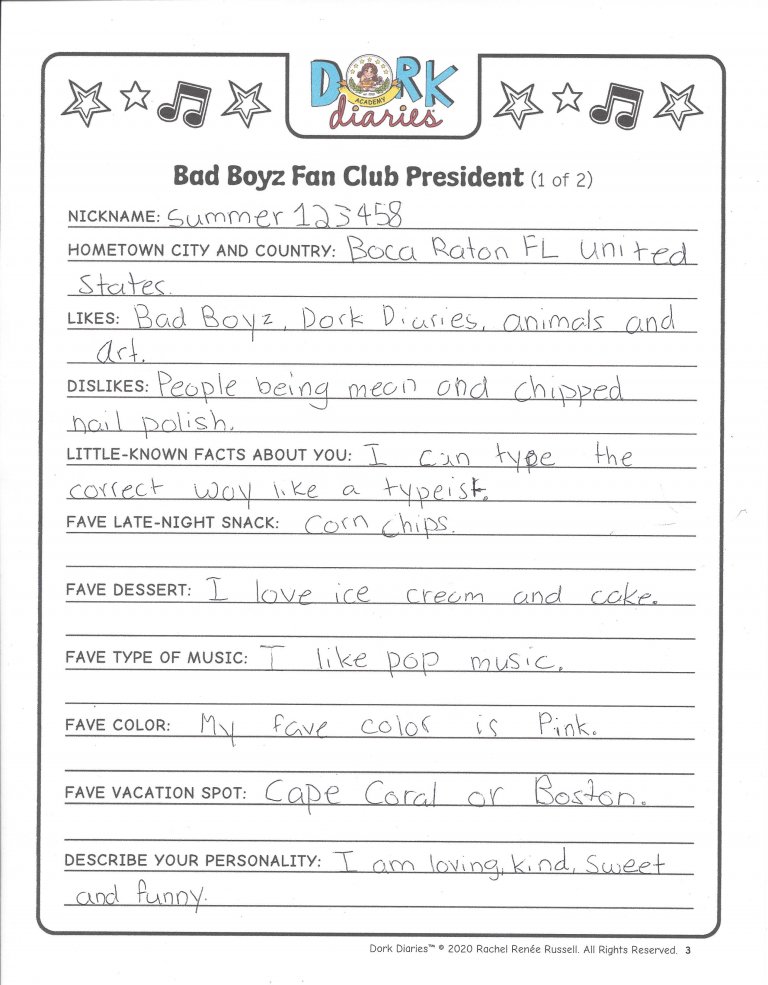 DORK
ACADEMY
diaries
Bad Boyz Fan Club President (1 of 2)
NICKNAME: Summer 123458
HOMETOWN CITY AND COUNTRY: Boca Raton FL United
States.
LIKES: Bad Boyz, Dork Diaries, animals and
Art.
DISLIKES: People being mean and chipped
nail polish.
LITTLE-KNOWN FACTS ABOUT YOU: I can type the
correct way like a typeist.
FAVE LATE-NIGHT SNACK: Corn chips.
FAVE DESSERT: I love ice cream and cake.
FAVE TYPE OF MUSIC: I like pop music.
FAVE COLOR: My fave color is Pink.
FAVE VACATION SPOT: Cape Coral or Boston.
DESCRIBE YOUR PERSONALITY: I am loving, kind, sweet
and funny.
Dork Diaries™ © 2020 Rachel Renée Russell. All Rights Reserved. 3